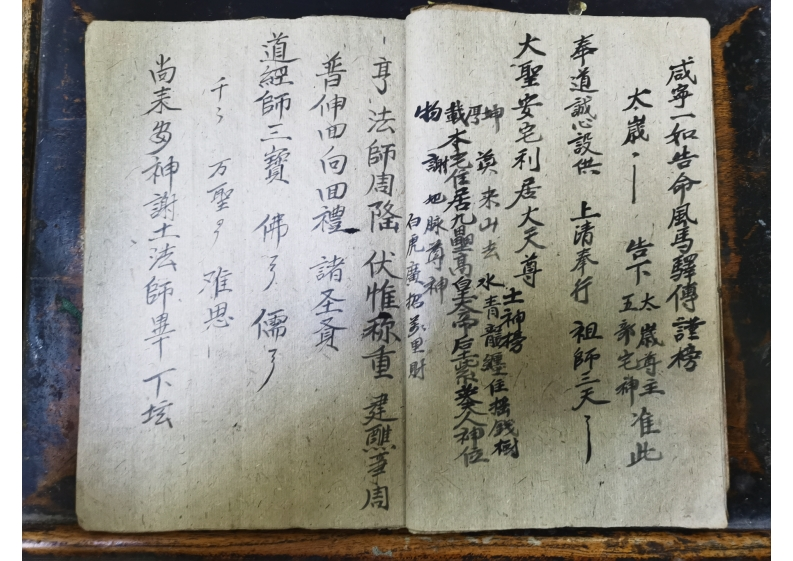 咸寧一如告命風馬驛傳謹榜
太歲 告下 太歲尊主 五部宅神 准此
奉道誠心設供 上清奉行 祖師三天
大聖安宅利居大天尊
土神榜
坤 漢來山去水 青龍纏住搖錢樹
厚載 本宅住居九壘高皇大帝后土 夫人神位
物 謝 地脉尊神
白虎 招萬里財
亨 法師周隆 伏惟称重 建醮事周
普伸回向回禮 諸圣賢
道經師三寶 佛 儒
千 万聖 难思
尚来 神謝土法師畢 下坛